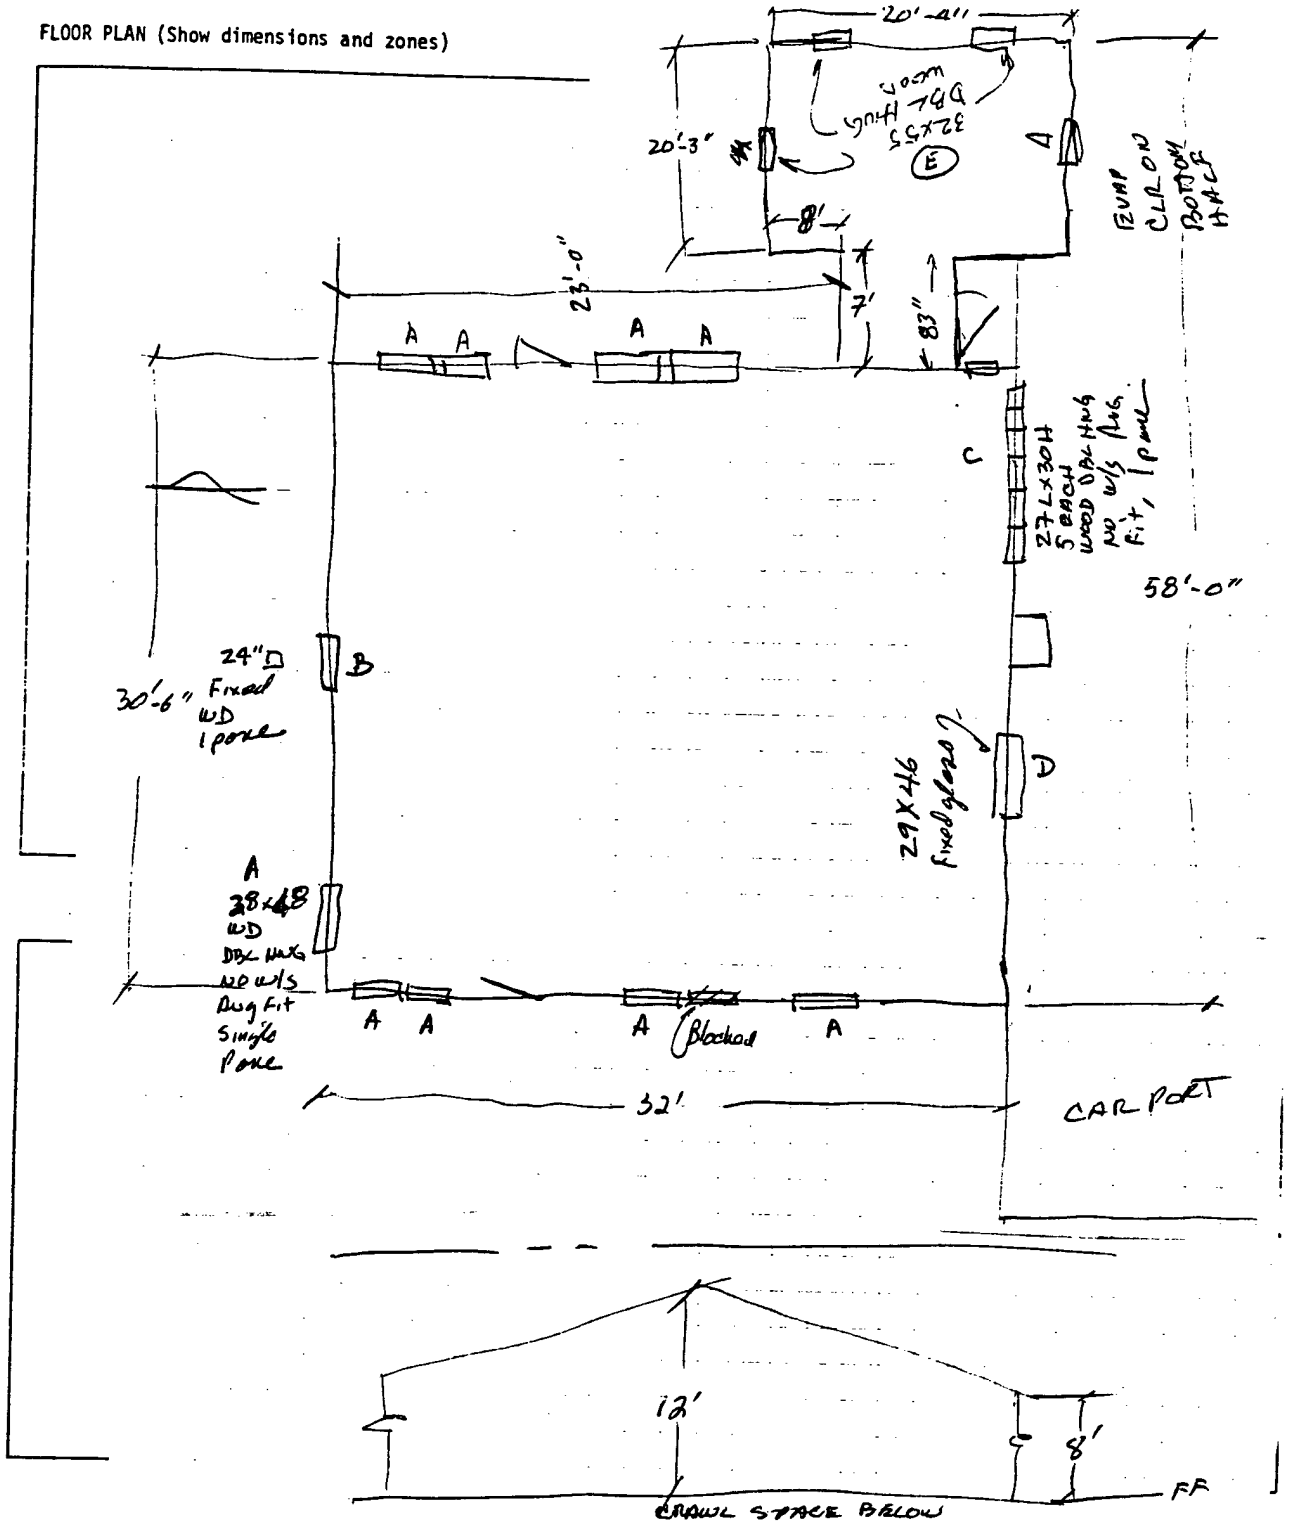 FLOOR PLAN (Show dimensions and zones)
20'-4"
20'-3"
32x55
DBL HUG
WOOD
E
A
EVAP
CLR ON
BOTTOM
HALF
8'
23'-0"
7'
83"
A A A A
C
27L X 30H
5 EACH
WOOD DBL HNG
NO W/S AVG
Fit, 1 pane
58'-0"
24" □
Fixed
WD
1 pane
B
30'-6"
29 X 46
Fixed glass
D
A
38x48
WD
DBL HNG
NO W/S
Avg Fit
Single
Pane
A A A Blocked A
32'
CARPORT
12'
8'
FF
CRAWL SPACE BELOW